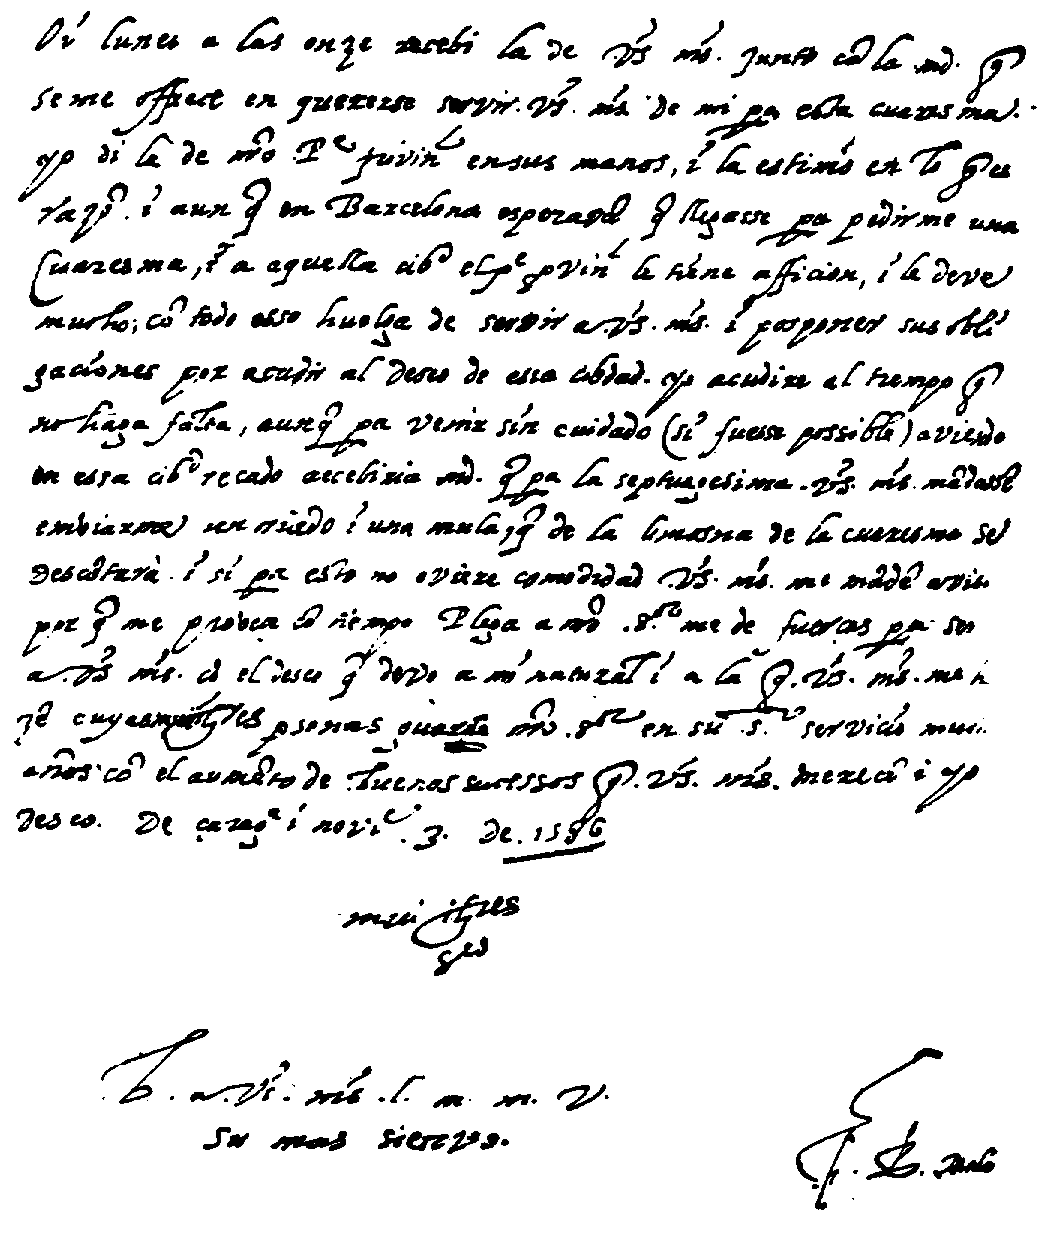 Oi lunes a las onze recebi la de V.s m.s junto cō la md. q̄
se me offrece en quererse servir V.s m.s de mi pa essa cuaresma.
yo di la de nr̄o P.e provin.l en sus manos, i la estimó en lo q̄ es
raçō. i aun q̄ en Barcelona esperavā q̄ llegasse pa pedirme una
Cuaresma, i a aquella cib.d el p.e provin.l le tiene afficion, i le deve
mucho; cō todo esso huelga de servir a V.s m.s i posponer sus obli
gaciones por acudir al deseo de essa cibdad. yo acudire al tiempo q̄
no haga falta, aunq̄ pa venir sin cuidado (si fuesse possible) aviendo
en essa cib.d recado recebiria md. q̄ pa la septuagesima V.s m.s mādassē
embiarme un moço i una mula, q̄ de la limosna de la cuaresma se
descōtarà. i si pa esto no oviere comodidad V.s m.s me māde avis
por q̄ me provea cō tiempo Plega a nr̄o S.or me de fuerças pa ser
a V.s m.s cō el deseo q̄ devo a mi natural i a la q̄ V.s m.s me
cuyas muy Ill.res psonas guarde nr̄o S.or en su s.to servicio muc
años cō el aumēto de buenos sucessos q̄ V.s m.s merecē i yo
deseo. De çarag.a i novi.e 3. de 1586
mui ill.res
s.res
B. a V.s m.s l. m. m. V.
su mas siervo.